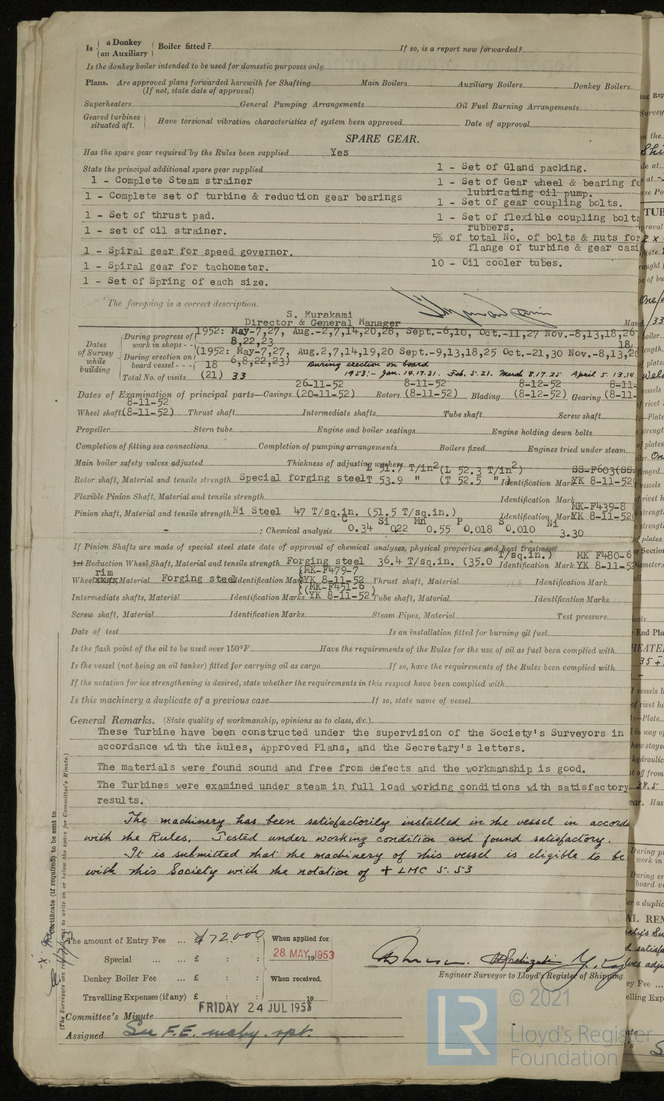 Is { a Donkey / an Auxiliary } Boiler fitted? If so, is a report now forwarded?
Is the donkey boiler intended to be used for domestic purposes only
Plans. Are approved plans forwarded herewith for Shafting Main Boilers Auxiliary Boilers Donkey Boilers
(If not, state date of approval)
Superheaters General Pumping Arrangements Oil Fuel Burning Arrangements
Geared turbines situated aft. } Have torsional vibration characteristics of system been approved Date of approval
SPARE GEAR.
Has the spare gear required by the Rules been supplied Yes
State the principal additional spare gear supplied
1 - Complete Steam strainer
1 - Complete set of turbine & reduction gear bearings
1 - Set of thrust pad.
1 - set of oil strainer.
1 - Spiral gear for speed governor.
1 - Spiral gear for tachometer.
1 - Set of Spring of each size.
1 - Set of Gland packing.
1 - Set of Gear wheel & bearing fo
lubricating oil pump.
1 - Set of gear coupling bolts.
1 - Set of flexible coupling bolts
rubbers.
5% of total No. of bolts & nuts for
flange of turbine & gear casi
10 - Oil cooler tubes.
The foregoing is a correct description.
S. Murakami
Director & General Manager
Dates of Survey while building
During progress of work in shops - - 1952: May-7,27, Aug.-2,7,14,20,28, Sept.-6,10, Oct.-11,27 Nov.-8,13,18,26
8,22,23 18,
During erection on board vessel - - - (1952: May-7,27, Aug.2,7,14,19,20 Sept.-9,13,18,25 Oct.-21,30 Nov.-8,13,20
18 6,8,22,23) During erection on board
Total No. of visits (21) 33 1953:- Jan. 14.17.31. Feb. 5.21. March 8.17.25 April 5.13.14
26-11-52 8-11-52 8-12-52 8-11-
Dates of Examination of principal parts—Casings (20-11-52) Rotors (8-11-52) Blading (8-12-52) Gearing (8-11-
8-11-52
Wheel shaft (8-11-52) Thrust shaft Intermediate shafts Tube shaft Screw shaft
Propeller Stern tube Engine and boiler seatings Engine holding down bolts
Completion of fitting sea connections Completion of pumping arrangements Boilers fixed Engines tried under steam
Main boiler safety valves adjusted Thickness of adjusting washers
L 51.7 T/in² (L 52.3 T/in²) SS-F603(SS-
Rotor shaft, Material and tensile strength Special forging steel T 53.9 " (T 52.5 " ) Identification Mark YK 8-11-52
Flexible Pinion Shaft, Material and tensile strength Identification Mark
MK-F439-8
Pinion shaft, Material and tensile strength Ni Steel 47 T/sq.in. (51.5 T/sq.in.) Identification Mark YK 8-11-52
C Si Mn P S Ni
: Chemical analysis 0.34 022 0.55 0.018 0.010 3.30
If Pinion Shafts are made of special steel state date of approval of chemical analyses, physical properties and heat treatment
T/sq.in.) MK F480-6
1st Reduction Wheel Shaft, Material and tensile strength Forging steel 36.4 T/sq.in. (35.0 Identification Mark YK 8-11-52
rim (MK-F479-7
Wheel Material Forging steel Identification Mark YK 8-11-52 Thrust shaft, Material Identification Mark
((MK-F451-6
Intermediate shafts, Material Identification Marks YK 8-11-52) Tube shaft, Material Identification Marks
Screw shaft, Material Identification Marks Steam Pipes, Material Test pressure
Date of test Is an installation fitted for burning oil fuel
Is the flash point of the oil to be used over 150°F Have the requirements of the Rules for the use of oil as fuel been complied with
Is the vessel (not being an oil tanker) fitted for carrying oil as cargo If so, have the requirements of the Rules been complied with
If the notation for ice strengthening is desired, state whether the requirements in this respect have been complied with
Is this machinery a duplicate of a previous case If so, state name of vessel
General Remarks. (State quality of workmanship, opinions as to class, &c.)
These Turbine have been constructed under the supervision of the Society's Surveyors in
accordance with the Rules, Approved Plans, and the Secretary's letters.
The materials were found sound and free from defects and the workmanship is good.
The Turbines were examined under steam in full load working conditions with satisfactory
results.
The machinery has been satisfactorily installed in the vessel in accord
with the Rules. Tested under working condition and found satisfactory.
It is submitted that the machinery of this vessel is eligible to be
with this Society with the notation of + LMC 5.53
The amount of Entry Fee ... ¥72,000 When applied for
Special ... £ : : 28 MAY 1953
Donkey Boiler Fee ... £ : : When received.
Travelling Expenses (if any) £ : : 19
Engineer Surveyor to Lloyd's Register of Shipping.
Committee's Minute FRIDAY 24 JUL 1953
Assigned See F.E. mchy. rpt.
© 2021
Lloyd's Register
Foundation